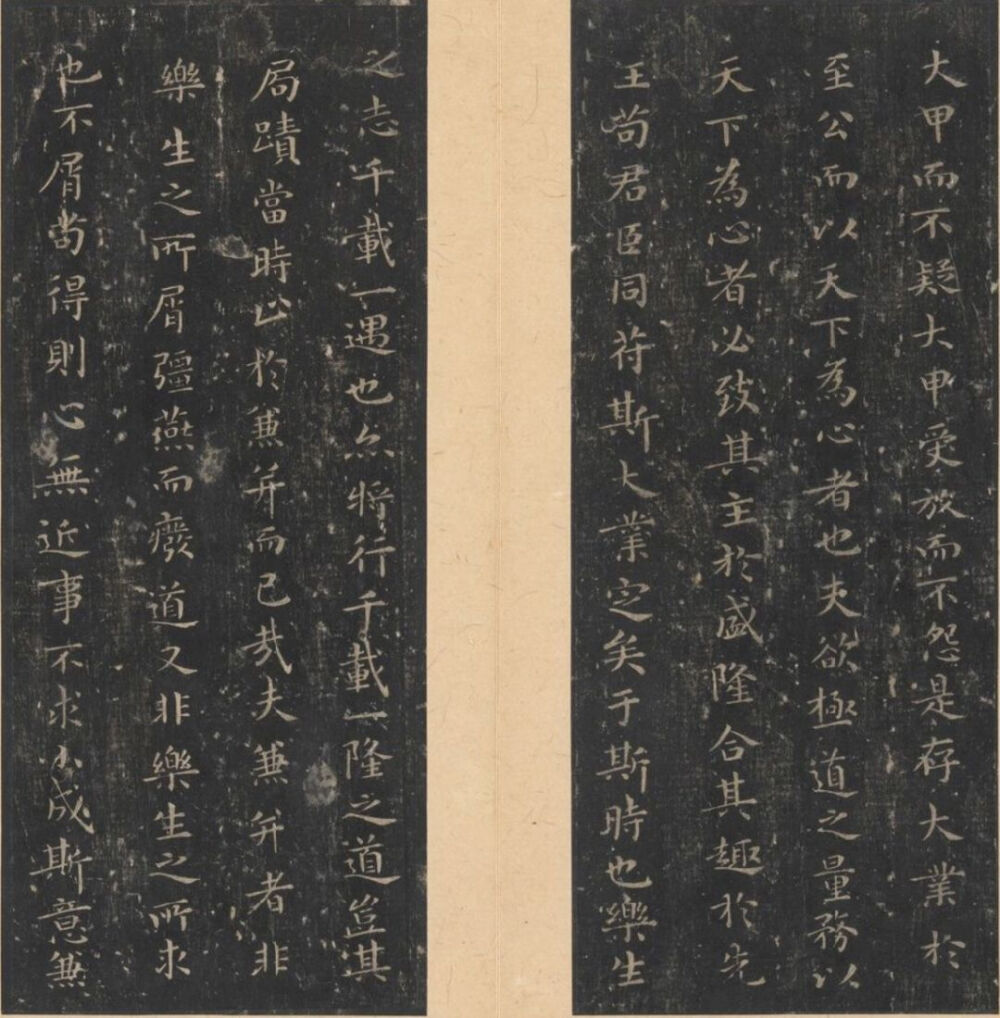 大甲而不疑大甲受放而不怨是存大業於
至公而以天下為心者也夫欲極道之量務以
天下為心者必致其主於盛隆合其趣於先
王苟君臣同苻斯大業定矣于斯時也樂生
之志千載一遇也亦將行千載一隆之道豈其
局蹟當時止於兼并而已哉夫兼并者非
樂生之所屑彊燕而癈道又非樂生之所求
也不屑苟得則心無近事不求小成斯意兼